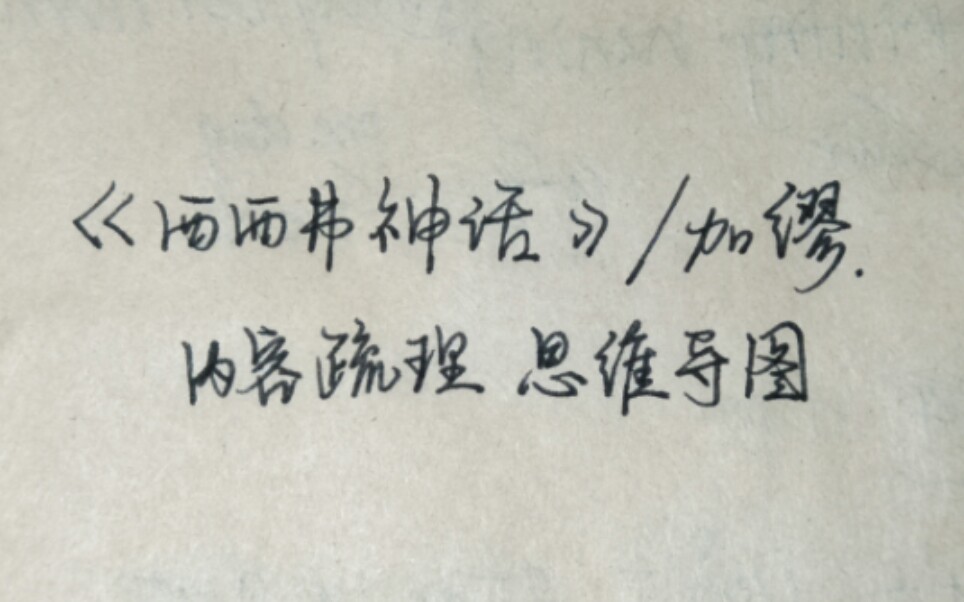 《西西弗神话》/加缪.
内容疏理 思维导图